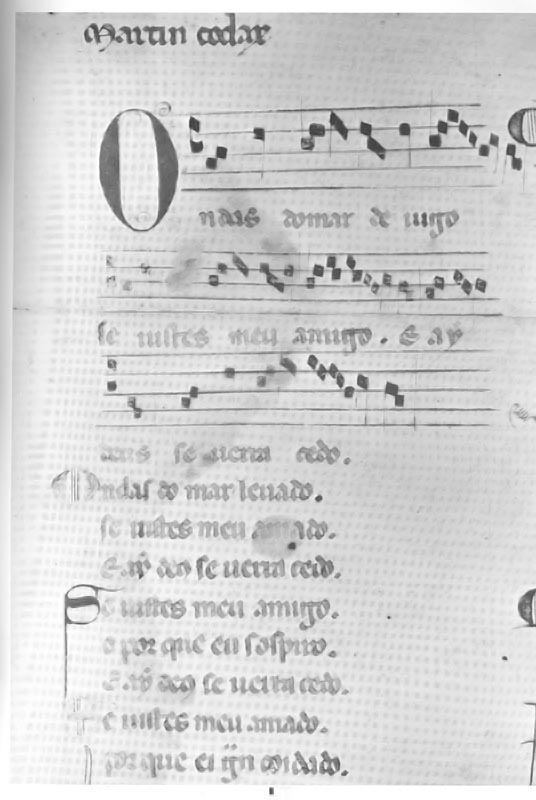 Martin codax
Ondas domar de uigo
se uistes meu amigo. E ay
deus se uerra cedo.
Ondas do mar leuado.
se uistes meu amado.
E ay deꝯ se uerra cedo.
Se uistes meu amigo.
o por que eu sospiro.
E ay deꝯ se uerra cedo.
Se uistes meu amado.
por que ei coidado.